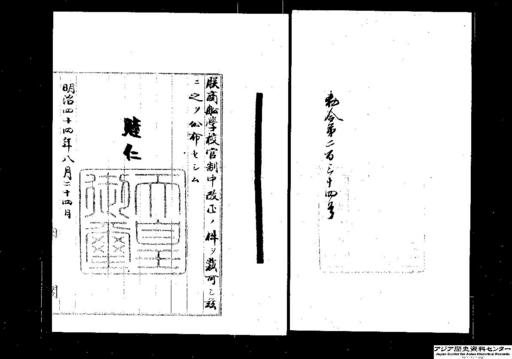 勅令第二百三十四号
朕商船学校官制中改正ノ件ヲ裁可シ茲
ニ之ヲ公布セシム
睦仁
天皇御璽
明治四十四年八月二十四日
アジア歴史資料センター
Japan Center for Asian Historical Records